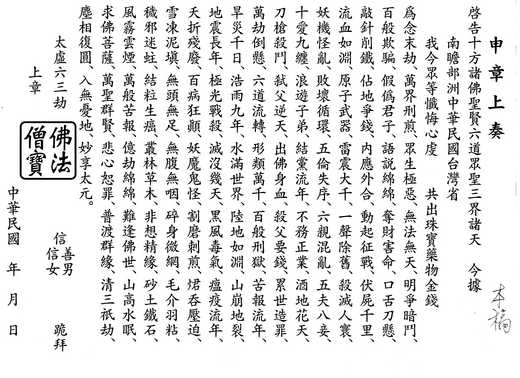 申章上奏
啓告十方諸佛聖賢六道眾聖三界諸天　今據
南瞻部洲中華民國台灣省
我今眾等懺悔心虔　共出珠寶藥物金錢
爲念末劫、萬界刑煎、眾生極惡、無法無天、明爭暗鬥、
百般欺騙、假僞君子、語說綿綿、奪財害命、口舌刀懸、
敲針削鐵、佔地爭錢、內應外合、動起征戰、伏屍千里、
流血如淵、原子武器、雷震大千、一聲除舊、殺滅人寰、
妖機怪亂、敗壞循環、五倫失序、六親混亂、五夫八妾、
十愛九纏、浪遊子弟、結黨流年、不務正業、酒地花天、
刀槍殺鬥、弒父逆天、出佛身血、殺父要錢、累世造罪、
萬劫倒懸、六道流轉、形類萬千、百般刑獄、苦報流年、
旱災千日、浩雨九年、水滿世界、陸地如淵、山崩地裂、
地震長年、極光戰殺、減沒幾天、黑風毒氣、瘟疫流年、
夭折殘廢、百病狂顛、妖魔鬼怪、割磨刺煎、焰吞壓迫、
雪凍泥填、無頭無足、無腹無咽、碎身微網、毛介羽粘、
穢邪迷蛀、結粒生癌、叢林草木、非想精緣、砂土鐵石、
風霧雲煙、萬般苦報、億劫綿綿、難逢佛世、山高水眠、
求佛菩薩、萬聖群賢、慈心恕罪、普渡群緣、清三祇劫、
塵相復圓、入無憂地、妙享太元。
太虛六三劫
上章
佛法僧寶
信善男
信女　跪拜
中華民國　年　月　日